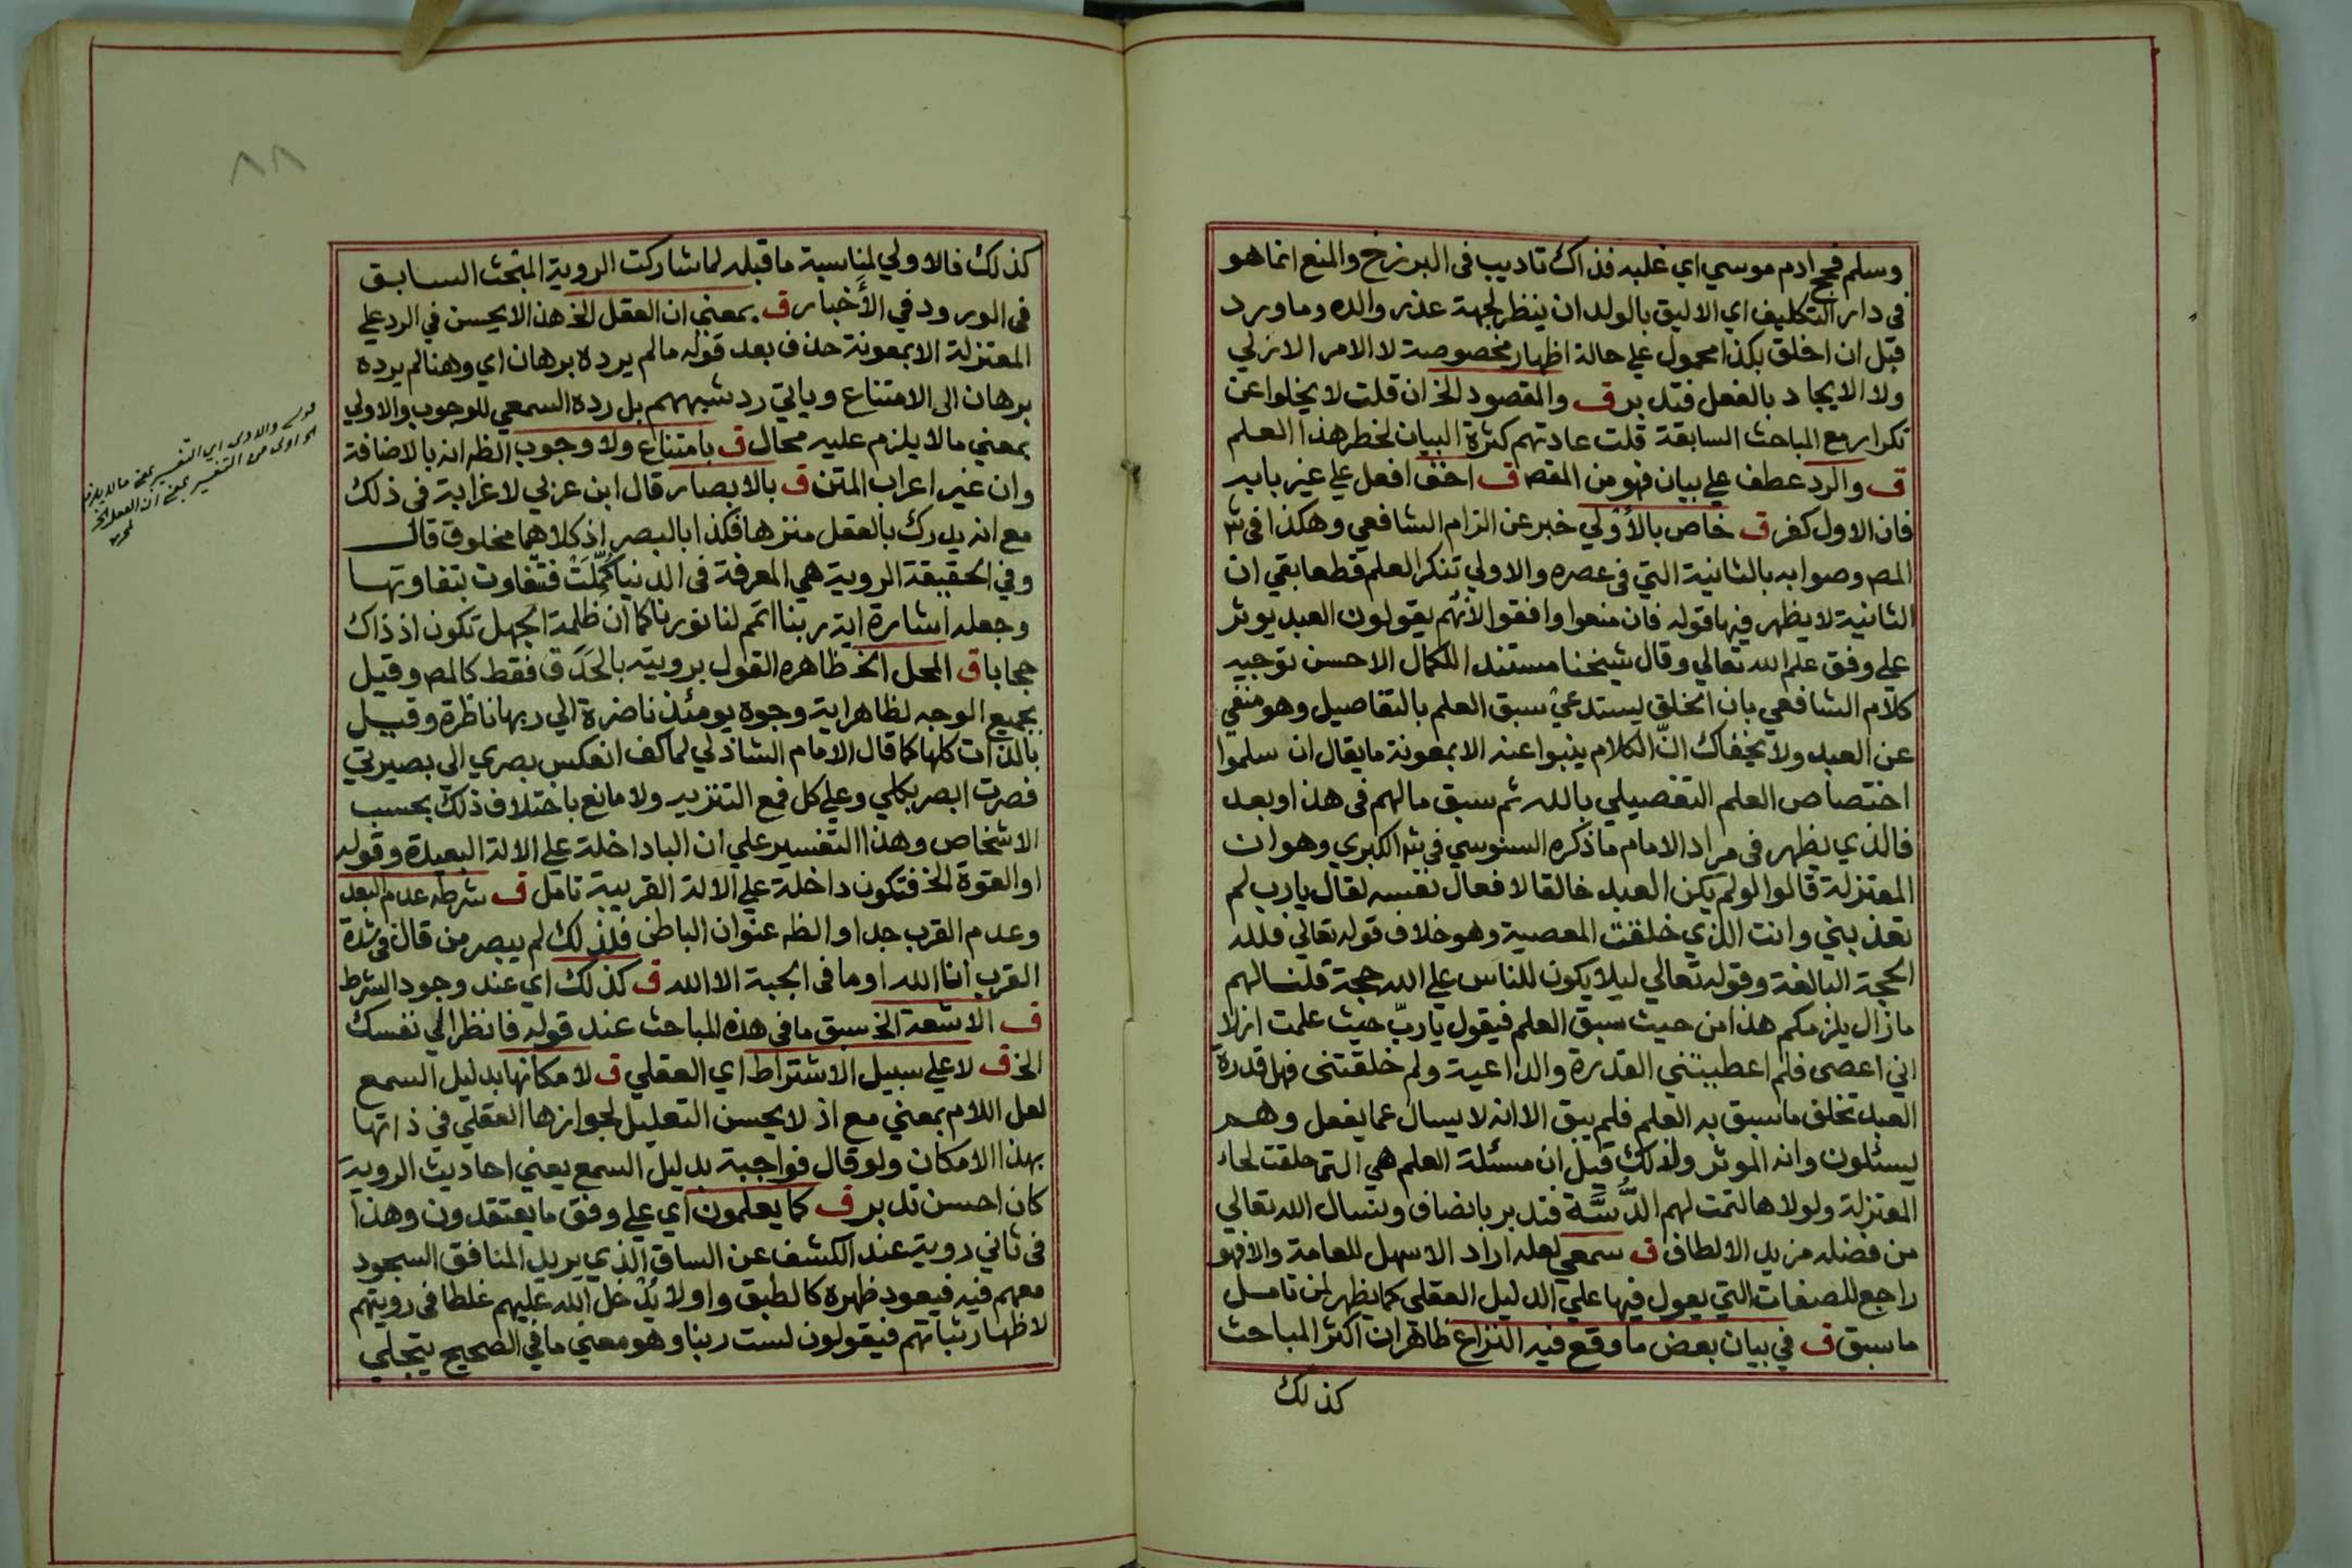 وسلم فحج ادم موسي اي غلبه فذاك تاديب في البرزخ والمنع انما هو
في دار التكليف اي الاليق بالولد ان ينظر لجهة عذر والده وما ورد
قبل ان اخلق بكذا محمول علي حالة اظهار مخصوصة لا الامر الازلي
ولا الايجاد بالفعل فتدبر ق والمقصود الخ ان قلت لا يخلوا عن
تكرار مع المباحث السابقة قلت عادتهم كثرة البيان لخطر هذا العلم
ق والرد عطف علي بيان فهو من المقصـ ق اخف افعل علي غير بابه
فان الاول كفر ق خاص بالأوْلي خبر عن الزام الشافعي وهكذا في شـ
المصـ وصوابه بالثانية التي في عصره والاولي تنكر العلم قطعا بقي ان
الثانية لا يظهر فيها قوله فان منعوا وافقوا لانهم يقولون العبد يوثر
علي وفق علم الله تعالي وقال شيخنا مستندا للكمال الاحسن توجيه
كلام الشافعي بان الخلق يستدعي سبق العلم بالتفاصيل وهو منفي
عن العبد ولا يخفاك انّ الكلام ينبوا عنه الا بمعونة ما يقال ان سلموا
اختصاص العلم التفصيلي بالله ثم سبق ما لهم في هذا وبعد
فالذي يظهر في مراد الامام ما ذكره السنوسي في شـ الكبري وهو ان
المعتزلة قالوا لو لم يكن العبد خالقا لافعال نفسه لقال يارب لم
تعذبني وانت الذي خلقت المعصية وهو خلاف قوله تعالي فلله
الحجة البالغة وقوله تعالي ليلا يكون للناس علي الله حجة قلنا لهم
ما زال يلزمكم هذا من حيث سبق العلم فيقول ياربّ حيث علمت ازلا
اني اعصي فلم اعطيتني القدرة والداعية ولم خلقتني فهل قدرة
العبد تخلف ما سبق به العلم فلم يبق الا انه لا يسال عما يفعل وهم
يسئلون وانه الموثر ولذلك قيل ان مسئلة العلم هي التي حلقت لحاء
المعتزلة ولولاها لتمت لهم الدُّسَّة فتدبر بانصاف ونسال الله تعالي
من فضله مزيد الالطاف ق سمعي لعله اراد الاسهل للعامة والا فهو
راجع للصفات التي يعول فيها علي الدليل العقلي كما يظهر لمن تامل
ما سبق ق في بيان بعض ما وقع فيه النزاع ظاهر ان اكثر المباحث
كذلك
٨٨
كذلك فالاولي لمناسبة ما قبله لما شاركت الروية المبحث السابق
في الورود في الأخبار ق بمعني ان العقل الخ هذا لا يحسن في الرد علي
المعتزلة الا بمعونة حذف بعد قوله ما لم يرده برهان اي وهنا لم يرده
برهان الي الامتناع وياتي رد شبههم بل رده السمعي للوجوب والاولي
بمعني ما لا يلزم عليه محال ق بامتناع ولا وجوب الظـ انه بالاضافة
وان غير اعراب المتن ق بالابصار قال ابن عربي لا غرابة في ذلك
مع انه يدرك بالعقل منزها فكذا بالبصر اذ كلاهما مخلوق قال
وفي الحقيقة الروية هي المعرفة في الدنيا كُمِّلَتْ فتتفاوت بتفاوتها
وجعله اشارة اية ربنا اتمم لنا نورنا كما ان ظلمة الجهل تكون اذ ذاك
حجابا ق المحل الخ ظاهره القول برويته بالحَدَق فقط كالمصـ وقيل
بجميع الوجه لظاهر اية وجوه يومئذ ناضرة الي ربها ناظرة وقيل
بالذات كلها كما قال الامام الشاذلي لما كف انعكس بصري الي بصيرتي
فصرت ابصر بكلي وعلي كل فمع التنزيه ولا مانع باختلاف ذلك بحسب
الاشخاص وهذا التفسير علي ان البا داخلة علي الالة البعيدة وقوله
او القوة الخ فتكون داخلة علي الالة القريبة تامل ق شرطه عدم البعد
وعدم القرب جدا والظـ عنوان الباطن فلذلك لم يبصر من قال في شدة
القرب انا الله او ما في الجبة الا الله ق كذلك اي عند وجود الشرط
ق الاشعة الخ سبق ما في هذه المباحث عند قوله فانظر الي نفسك
الخ ق لا علي سبيل الاشتراط اي العقلي ق لا مكانها بدليل السمع
لعل اللام بمعني مع اذ لا يحسن التعليل لجوازها العقلي في ذاتها
بهذا الامكان ولو قال فواجبة بدليل السمع يعني احاديث الروية
كان احسن تدبر ق كما يعلمون اي علي وفق ما يعتقدون وهذا
في ثاني روية عند الكشف عن الساق الذي يريد المنافق السجود
معهم فيه فيعود ظهره كالطبق واولا يُدْخل الله عليهم غلطا في رويتهم
لاظهار ثباتهم فيقولون لست ربنا وهو معني ما في الصحيح يتجلي
قوله والاولي اي التفسير بمعني ما لا يلزم
الخ اولي من التفسير بمعني ان العقل الخ